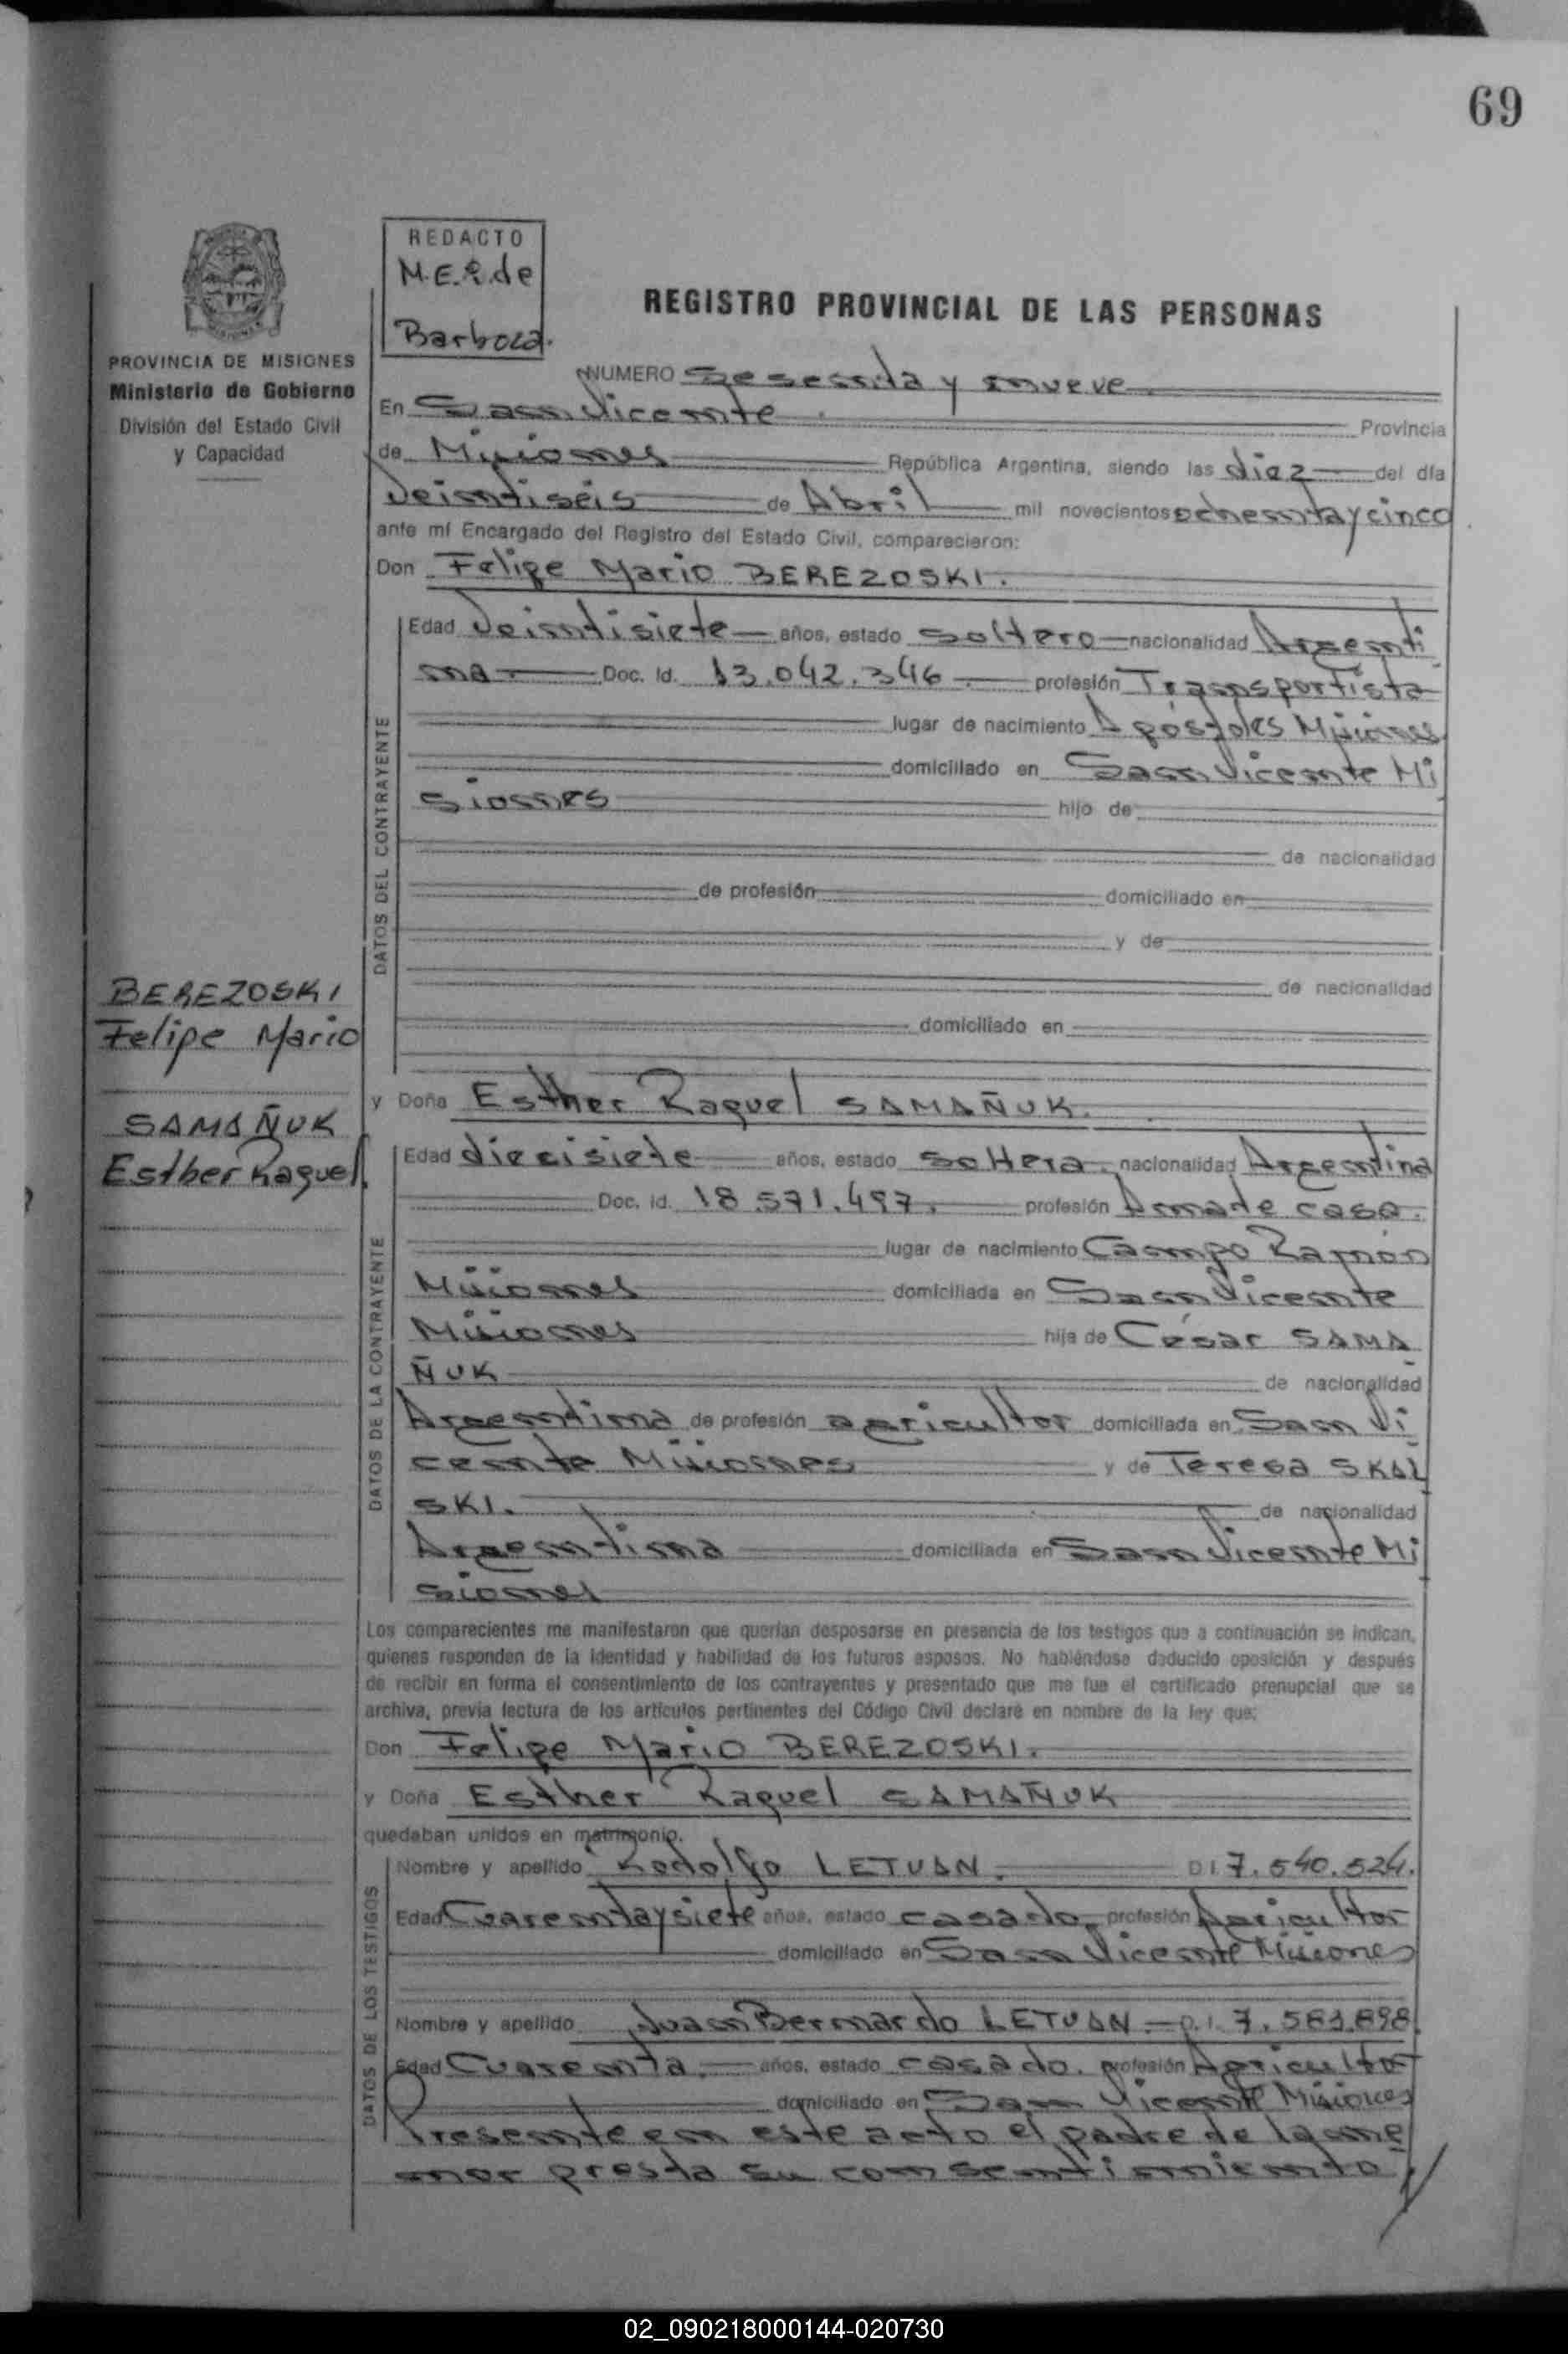 69
REDACTO
M.E.R.de
Barboza.
PROVINCIA DE MISIONES
Ministerio de Gobierno
División del Estado Civil
y Capacidad
REGISTRO PROVINCIAL DE LAS PERSONAS
NUMERO Sesenta y nueve
En San Vicente Provincia
de Misiones República Argentina, siendo las diez del día
Veintiséis de Abril mil novecientos ochenta y cinco
ante mí Encargado del Registro del Estado Civil, comparecieron:
Don Felipe Mario BEREZOSKI.
Edad Veintisiete años, estado soltero nacionalidad Argenti
na Doc. Id. 13.042.346 profesión Transportista
lugar de nacimiento Apóstoles Misiones
domiciliado en San Vicente Mi
siones hijo de
de nacionalidad
de profesión domiciliado en
y de
de nacionalidad
domiciliado en
DATOS DEL CONTRAYENTE
BEREZOSKI
Felipe Mario
SAMAÑUK
Esther Raquel.
y Doña Esther Raquel SAMAÑUK.
Edad diecisiete años, estado soltera nacionalidad Argentina
Doc. Id. 18.571.497. profesión Ama de casa.
lugar de nacimiento Campo Ramón
Misiones domiciliada en San Vicente
Misiones hija de César SAMA
ÑUK de nacionalidad
Argentina de profesión agricultor domiciliada en San Vi
cente Misiones y de Teresa
SKI. de nacionalidad
Argentina domiciliada en San Vicente Mi
siones
DATOS DE LA CONTRAYENTE
Los comparecientes me manifestaron que querían desposarse en presencia de los testigos que a continuación se indican,
quienes responden de la identidad y habilidad de los futuros esposos. No habiéndose deducido oposición y después
de recibir en forma el consentimiento de los contrayentes y presentado que me fue el certificado prenupcial que se
archiva, previa lectura de los artículos pertinentes del Código Civil declaré en nombre de la ley que:
Don Felipe Mario BEREZOSKI.
y Doña Esther Raquel SAMAÑUK
quedaban unidos en matrimonio.
Nombre y apellido Rodolfo LETUAN. D I. 7.540.524.
Edad Cuarenta y siete años, estado casado profesión Agricultor
domiciliado en San Vicente Misiones
Nombre y apellido Juan Bernardo LETUAN D.I. 7.581.898.
Edad Cuarenta. años, estado casado. profesión Agricultor
domiciliado en San Vicente Misiones
DATOS DE LOS TESTIGOS
Presente en este acto el padre de la me
nor presta su consentimiento
02_090218000144-020730